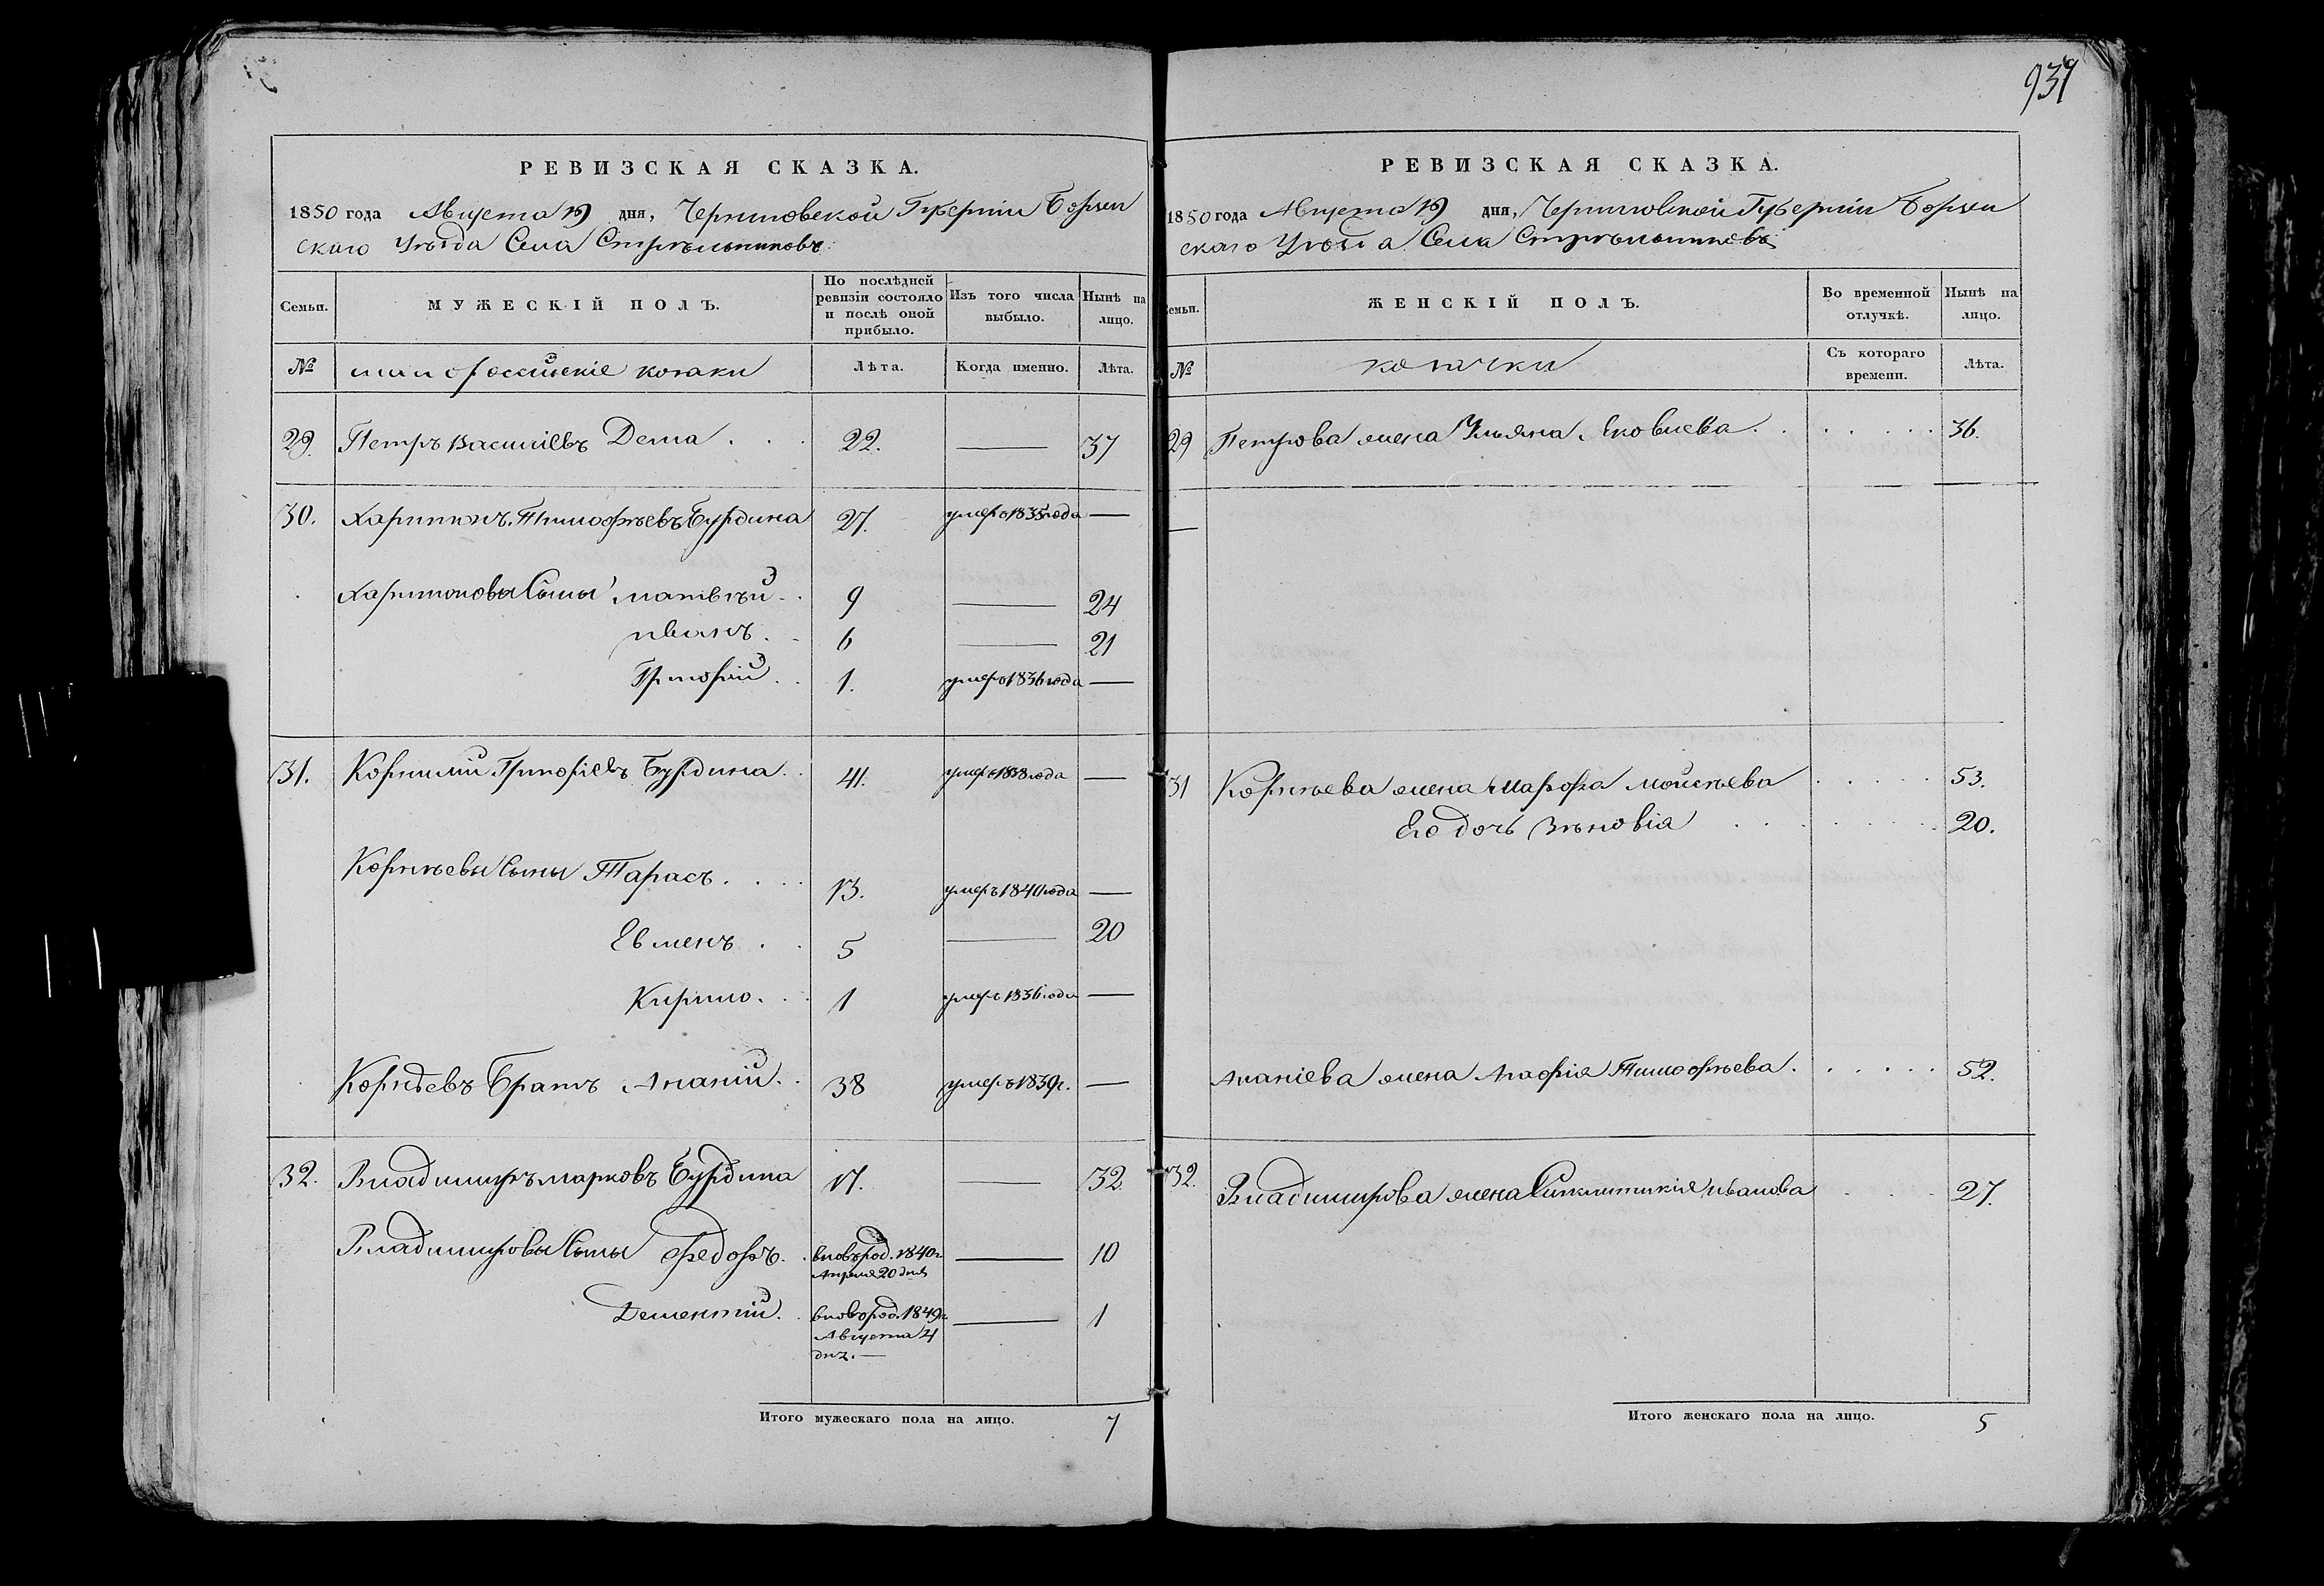 937
РЕВИЗСКАЯ СКАЗКА.
1850 года Августа 19 дня, Черниговской Губерніи Борзен
скаго Уѣзда Села Стрѣльниковъ
Семьи.
МУЖЕСКІЙ ПОЛЪ.
По послѣдней ревизіи состояло и послѣ оной прибыло.
Изъ того числа выбыло.
Нынѣ на лицо.
№ малороссійскіе козаки Лѣта. Когда именно. Лѣта.
29. Петръ Василіевъ Дема . . . 22. — 37
30. Харитонъ Тимофѣевъ Бурдина 27. умеръ 1835 года —
Харитоновы Сыны Матвѣй . . 9 — 24
Иванъ . . 6 — 21
Григорій . . 1. умеръ 1836 года —
31. Корнилій Григоріевъ Бурдина . . 41. умеръ 1838 года —
Корнѣевы Сыны Тарасъ . . . . 13. умеръ 1840 года —
Евменъ . . 5 — 20
Кирило . . . 1 умеръ 1836 года —
Корнѣевъ Братъ Ананій . . 38 умеръ 1839 г. —
32. Владимиръ Марковъ Бурдина 17. — 32.
Владимировы Сыны Федоръ . . вновь род. 1840 г.
Апреля 20 дня — 10
Дементій . . вновь род. 1849 г.
Августа 4
дня. — — 1
Итого мужескаго пола на лицо. 7
РЕВИЗСКАЯ СКАЗКА.
1850 года Августа 19 дня, Черниговской Губерніи Борзен
скаго Уѣзда Села Стрѣльниковъ
Семьи.
ЖЕНСКІЙ ПОЛЪ.
Во временной отлучкѣ.
Нынѣ на лицо.
№ козачки Съ котораго времени. Лѣта.
29 Петрова жена Ульяна Яковлева . . . . . . . 36.
31 Корнѣева жена Марфа Мойсѣева . . . . . 53.
Его дочь Зѣновія . . . . . . . 20.
Ананіева жена Агафія Тимофѣева . . . . . . 52.
32. Владимирова жена Синклитикія Иванова . . . 27.
Итого женскаго пола на лицо. 5